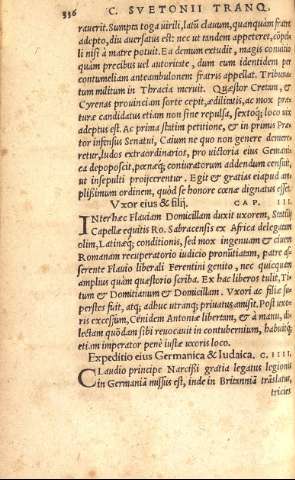 336 C. SVETONII TRANQ.
rauerit. Sumpta toga virili, latũ clauum, quanquam fratre
adepto, diu auersatus est: nec ut tandem appeteret, cõpel
li nisi à matre potuit. Ea demum extudit, magis conuitio
quàm precibus uel autoritate, dum eum identidem per
contumeliam anteambulonem fratris appellat. Tribuna
tum militum in Thracia meruit. Quæstor Cretam, &
Cyrenas prouinciam sorte cepit, ædilitatis, ac mox præ
turæ candidatus etiam non sine repulsa, sextoq; loco uix
adeptus est. Ac prima statim petitione, & in primis Præ
tor infensus Senatui, Caium ne quo non genere demere-
retur, ludos extraordinarios, pro uictoria eius Germani
ca depoposcit, pœnæq; coniuratorum addendum censuit,
ut insepulti proijcerentur. Egit & gratias eiapud am
plißimum ordinem, quòd se honore cœnæ dignatus esset.
Vxor eius & filij. CAP. III.
INterhæc Flauiam Domicillam duxit uxorem, Statilij
Capellæ equitis Ro. Sabracensis ex Africa delegatam
olim, Latinæq; conditionis, sed mox ingenuam & ciuem
Romanam recuperatorio iudicio pronũtiatam, patre as
serente Flauio liberali Ferentini genito, nec quicquam
amplius quàm quæstorio scriba. Ex hac liberos tulit, Ti
tum & Domitianum & Domicillam. Vxori ac filiæ su
perstes fuit, atq; adhuc utranq; priuatus amisit. Post uxo
ris excessum, Cenidem Antoniæ libertam, & à manu, di
lectam quõdam sibi reuocauit in contubernium, habuitq;
etiam imperator penè iustæ uxoris loco.
Expeditio eius Germanica & Iudaica. C. IIII.
CLaudio principe Narcißi gratia legatus legionis
in Germaniã missus est, inde in Britanniã trãslatus,
tricies